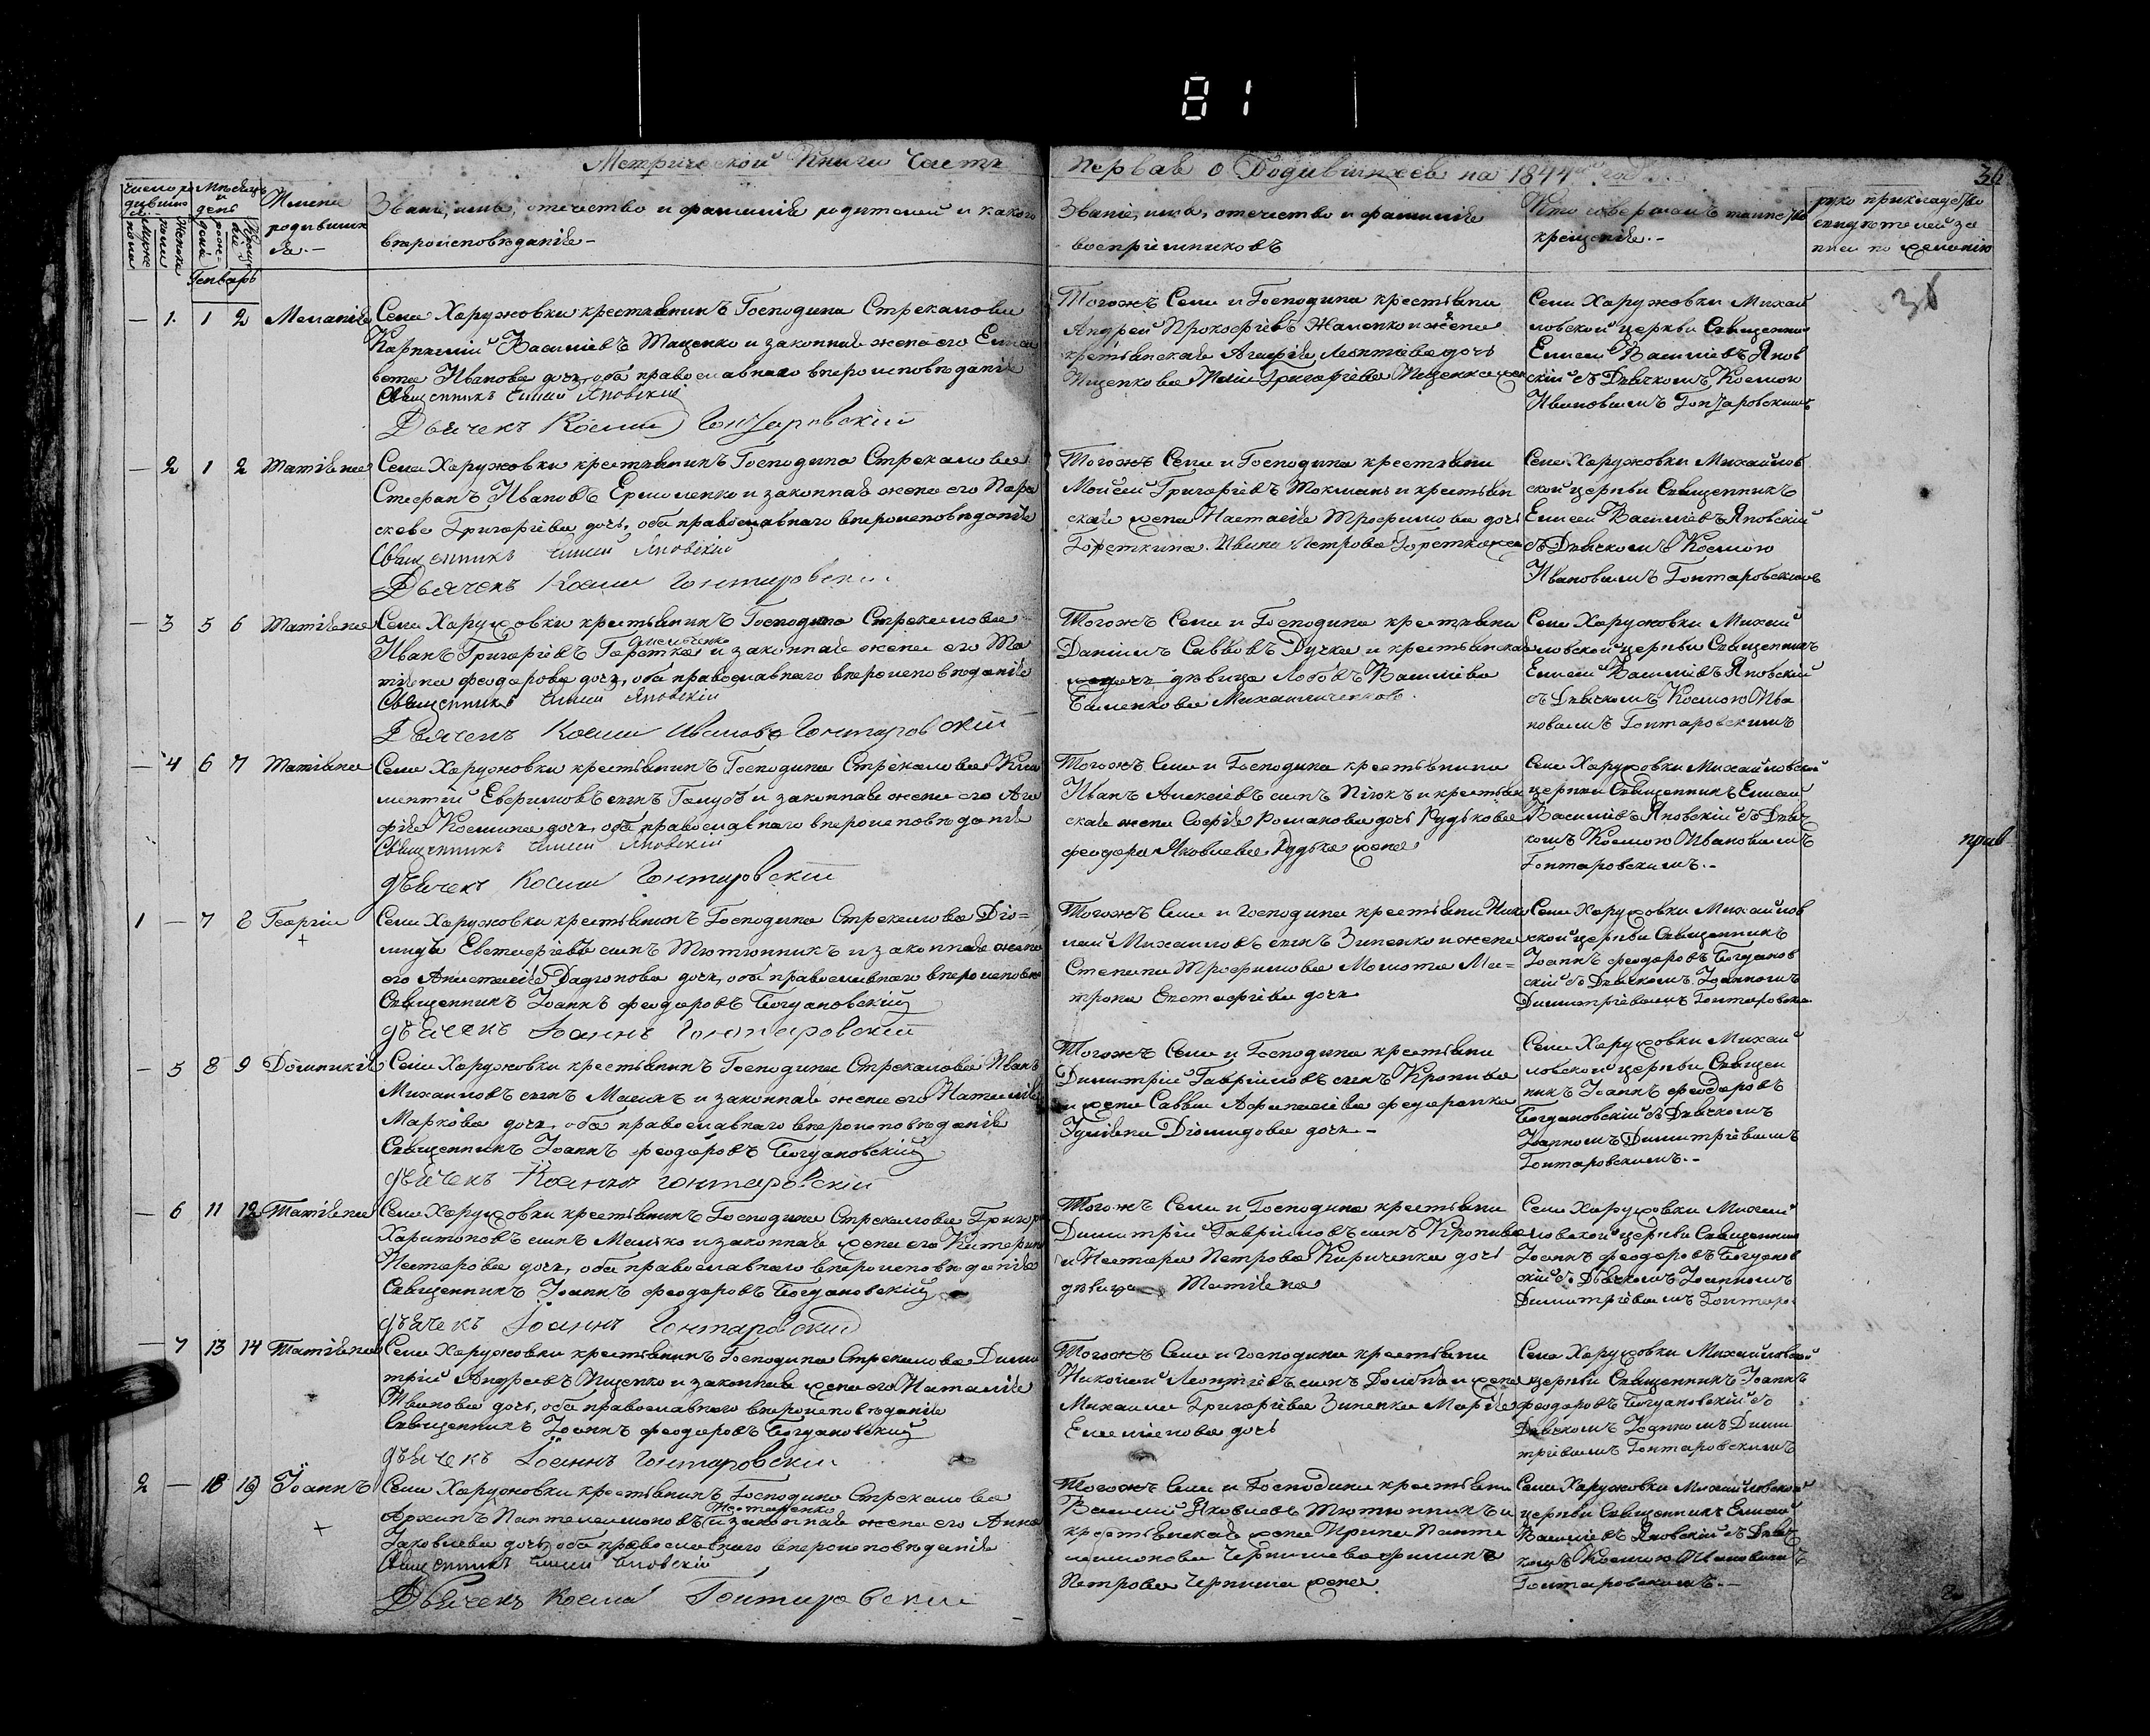 81
Метрической Книги Часть Первая о Родившихся на 1844й годъ
36
число ро дившихся
Мѣсяцъ и день
Имена родившихся.-
Званіе, имя, отечество и фамилія родителей и какого
вѣроисповѣданія-
Званіе, имя, отечество и фамилія
воспріемниковъ
Кто совершалъ таинство
крещенія.-
руко прикладство
свидѣтелей за
писи по желанію
Генварь
38
— 1. 1 2 Меланія
Села Харужовки крестьянинъ Господина Стрекалова
Василіевъ Маценко и законная жена его Елиса
вета Иванова дочь, оба православнаго вѣроисповѣданія
Священникъ Елисей Яновскій
Дьячекъ Косма Гонтаровскій
Тогожъ Села и Господина крестьяни
Андрей Прокофіевъ и жена
крестьянская Агафія Леонтіева дочь
Григоріева
Села Харужовки Михай
ловской церкви Священни
Елисей Василіевъ Янов
скій съ Дьячкомъ Космою
Ивановымъ Гонтаровскимъ
— 2 1 2 Татіяна
Села Харужовки крестьянинъ Господина Стрекалова
Стефанъ Ивановъ Ермоленко и законная жена его Пара
скева Григоріева дочь, оба православнаго вѣроисповѣданія
Священникъ Елисей Яновскій
Дьячекъ Косма Гонтаровскій
Тогожъ Села и Господина крестьяни
Моисей Григоріевъ Токмань и крестьян
ская жена Настасія Трофимова дочь
Петрова
Села Харужовки Михайлов
ской церкви Священникъ
Елисей Василіевъ Яновскій
съ Дьячкомъ Космою
Ивановымъ Гонтаровскимъ
— 3 5 6 Татіяна
Села Харужовки крестьянинъ Господина Стрекалова
Иванъ Григоріевъ и законная жена его Та
тіяна Феодорова дочь, оба православнаго вѣроисповѣданія
Священникъ Елисей Яновскій
Дьячекъ Косма Ивановъ Гонтаровскій
Тогожъ Села и Господина крестьяни
Даніилъ Саввовъ Дучка и крестьянская
дѣвица Любовъ Василіева
Села Харужовки Михай
ловской церкви Священникъ
Елисей Василіевъ Яновскій
съ Дьячкомъ Космою Ива
новымъ Гонтаровскимъ
— 4 6 7 Татіяна
Села Харужовки крестьянинъ Господина Стрекалова Кли
ментій Евфимовъ сынъ Голубъ и законная жена его Ага
фія Космина дочь, оба православнаго вѣроисповѣданія
Священникъ Елисей Яновскій
дьячекъ Косма Гонтаровскій
Тогожъ Села и Господина крестьянини
Иванъ Алексіевъ сынъ и крестьян
ская жена Софія Романова дочь Рудькова
Феодора Яковлева Рудька жена
Села Харужовки Михайловской
церкви Священникъ Елисей
Василіевъ Яновскій съ Дьяч
комъ Космою Ивановымъ
Гонтаровскимъ.-
прив
1 — 7 8 Георгій
+
Села Харужовки крестьянинъ Господина Стрекалова Діо=
мидъ Евстафіевъ сынъ Тютюнникъ и законная жена
его Анастасія дочь, оба православнаго вѣроисповѣ
Священникъ Іоаннъ Феодоровъ Богдановскій
дьячекъ Іоаннъ Гонтаровскій
Тогожъ Села и Господина крестьяни Нико
лай Михаиловъ сынъ Зиненко и жена
Степана Трофимова Ма=
трона Евстафіева дочь
Села Харужовки Михайлов
ской церкви Священникъ
Іоаннъ Феодоровъ Богданов
скій съ Дьячкомъ Іоанномъ
Димитріевымъ Гонтаровски
— 5 8 9 Домникія
Села Харужовки крестьянинъ Господина Стрекалова Иванъ
Михаиловъ сынъ и законная жена его Наталія
Маркова дочь, оба православнаго вѣроисповѣданія
Священникъ Іоаннъ Феодоровъ Богдановскій
дьячекъ Іоаннъ Гонтаровскій
Тогожъ Села и Господина крестьяни
Димитрій Гавріиловъ сынъ Кропива
и жена Саввы Афанасіева Федоренка
Уліяна Діомидова дочь.-
Села Харужовки Михай
ловской церкви Священ
никъ Іоаннъ Феодоровъ
Богдановскій съ Дьячкомъ
Іоанномъ Димитріевымъ
Гонтаровскимъ.-
— 6 11 12 Татіяна
Села Харужовки крестьянинъ Господина Стрекалова Григор
Харитоновъ сынъ и законная жена его Катерина
Нестерова дочь, оба православнаго вѣроисповѣданія
Священникъ Іоаннъ Феодоровъ Богдановскій
дьячекъ Іоаннъ Гонтаровскій
Тогожъ Села и Господина крестьяни
Димитрій Гавріиловъ сынъ Кропива
и Нестера Петрова Кириченка дочь
дѣвица Татіяна
Села Харужовки Михай
ловской церкви Священник
Іоаннъ Феодоровъ Богданов
скій съ Дьячкомъ Іоанномъ
Димитріевымъ Гонтаро
— 7 13 14 Татіяна
Села Харужовки крестьянинъ Господина Стрекалова Дими
трій Андреевъ Ищенко и законная жена его Наталія
Иванова дочь, оба православнаго вѣроисповѣданія
Священникъ Іоаннъ Феодоровъ Богдановскій
дьячекъ Іоаннъ Гонтаровскій
Тогожъ Села и Господина крестьяни
Николай Леонтіевъ сынъ и жена
Михаила Григоріева Зиненка Марія
дочь
Села Харужовки Михайловской
церкви Священникъ Іоаннъ
Феодоровъ Богдановскій съ
Дьячкомъ Іоанномъ Дими
тріевымъ Гонтаровскимъ
2 — 18 19 Іоаннъ
+
Села Харужовки крестьянинъ Господина Стрекалова
Архипъ Пантелеимоновъ и законная жена его Анна
Іаковлева дочь, оба православнаго вѣроисповѣданія
Священникъ Елисей Яновскій
Дьячекъ Косма Гонтаровскій
Тогожъ Села и Господина крестьяни
Василій Яковлевъ Тютюнникъ и
крестьянская жена Ирина Панте
леимонова
Петрова жена
Села Харужовки Михайловской
церкви Священникъ Елисей
Василіевъ Яновскій съ Дьяч
комъ Космою Ивановымъ
Гонтаровскимъ.-